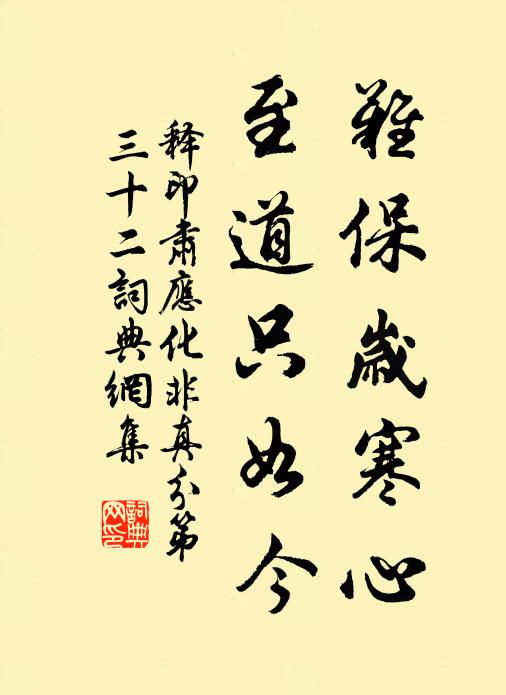 難保歲寒心
至道只如今
释印肅應化非真分第
三十二詞典網集
詞典
网印